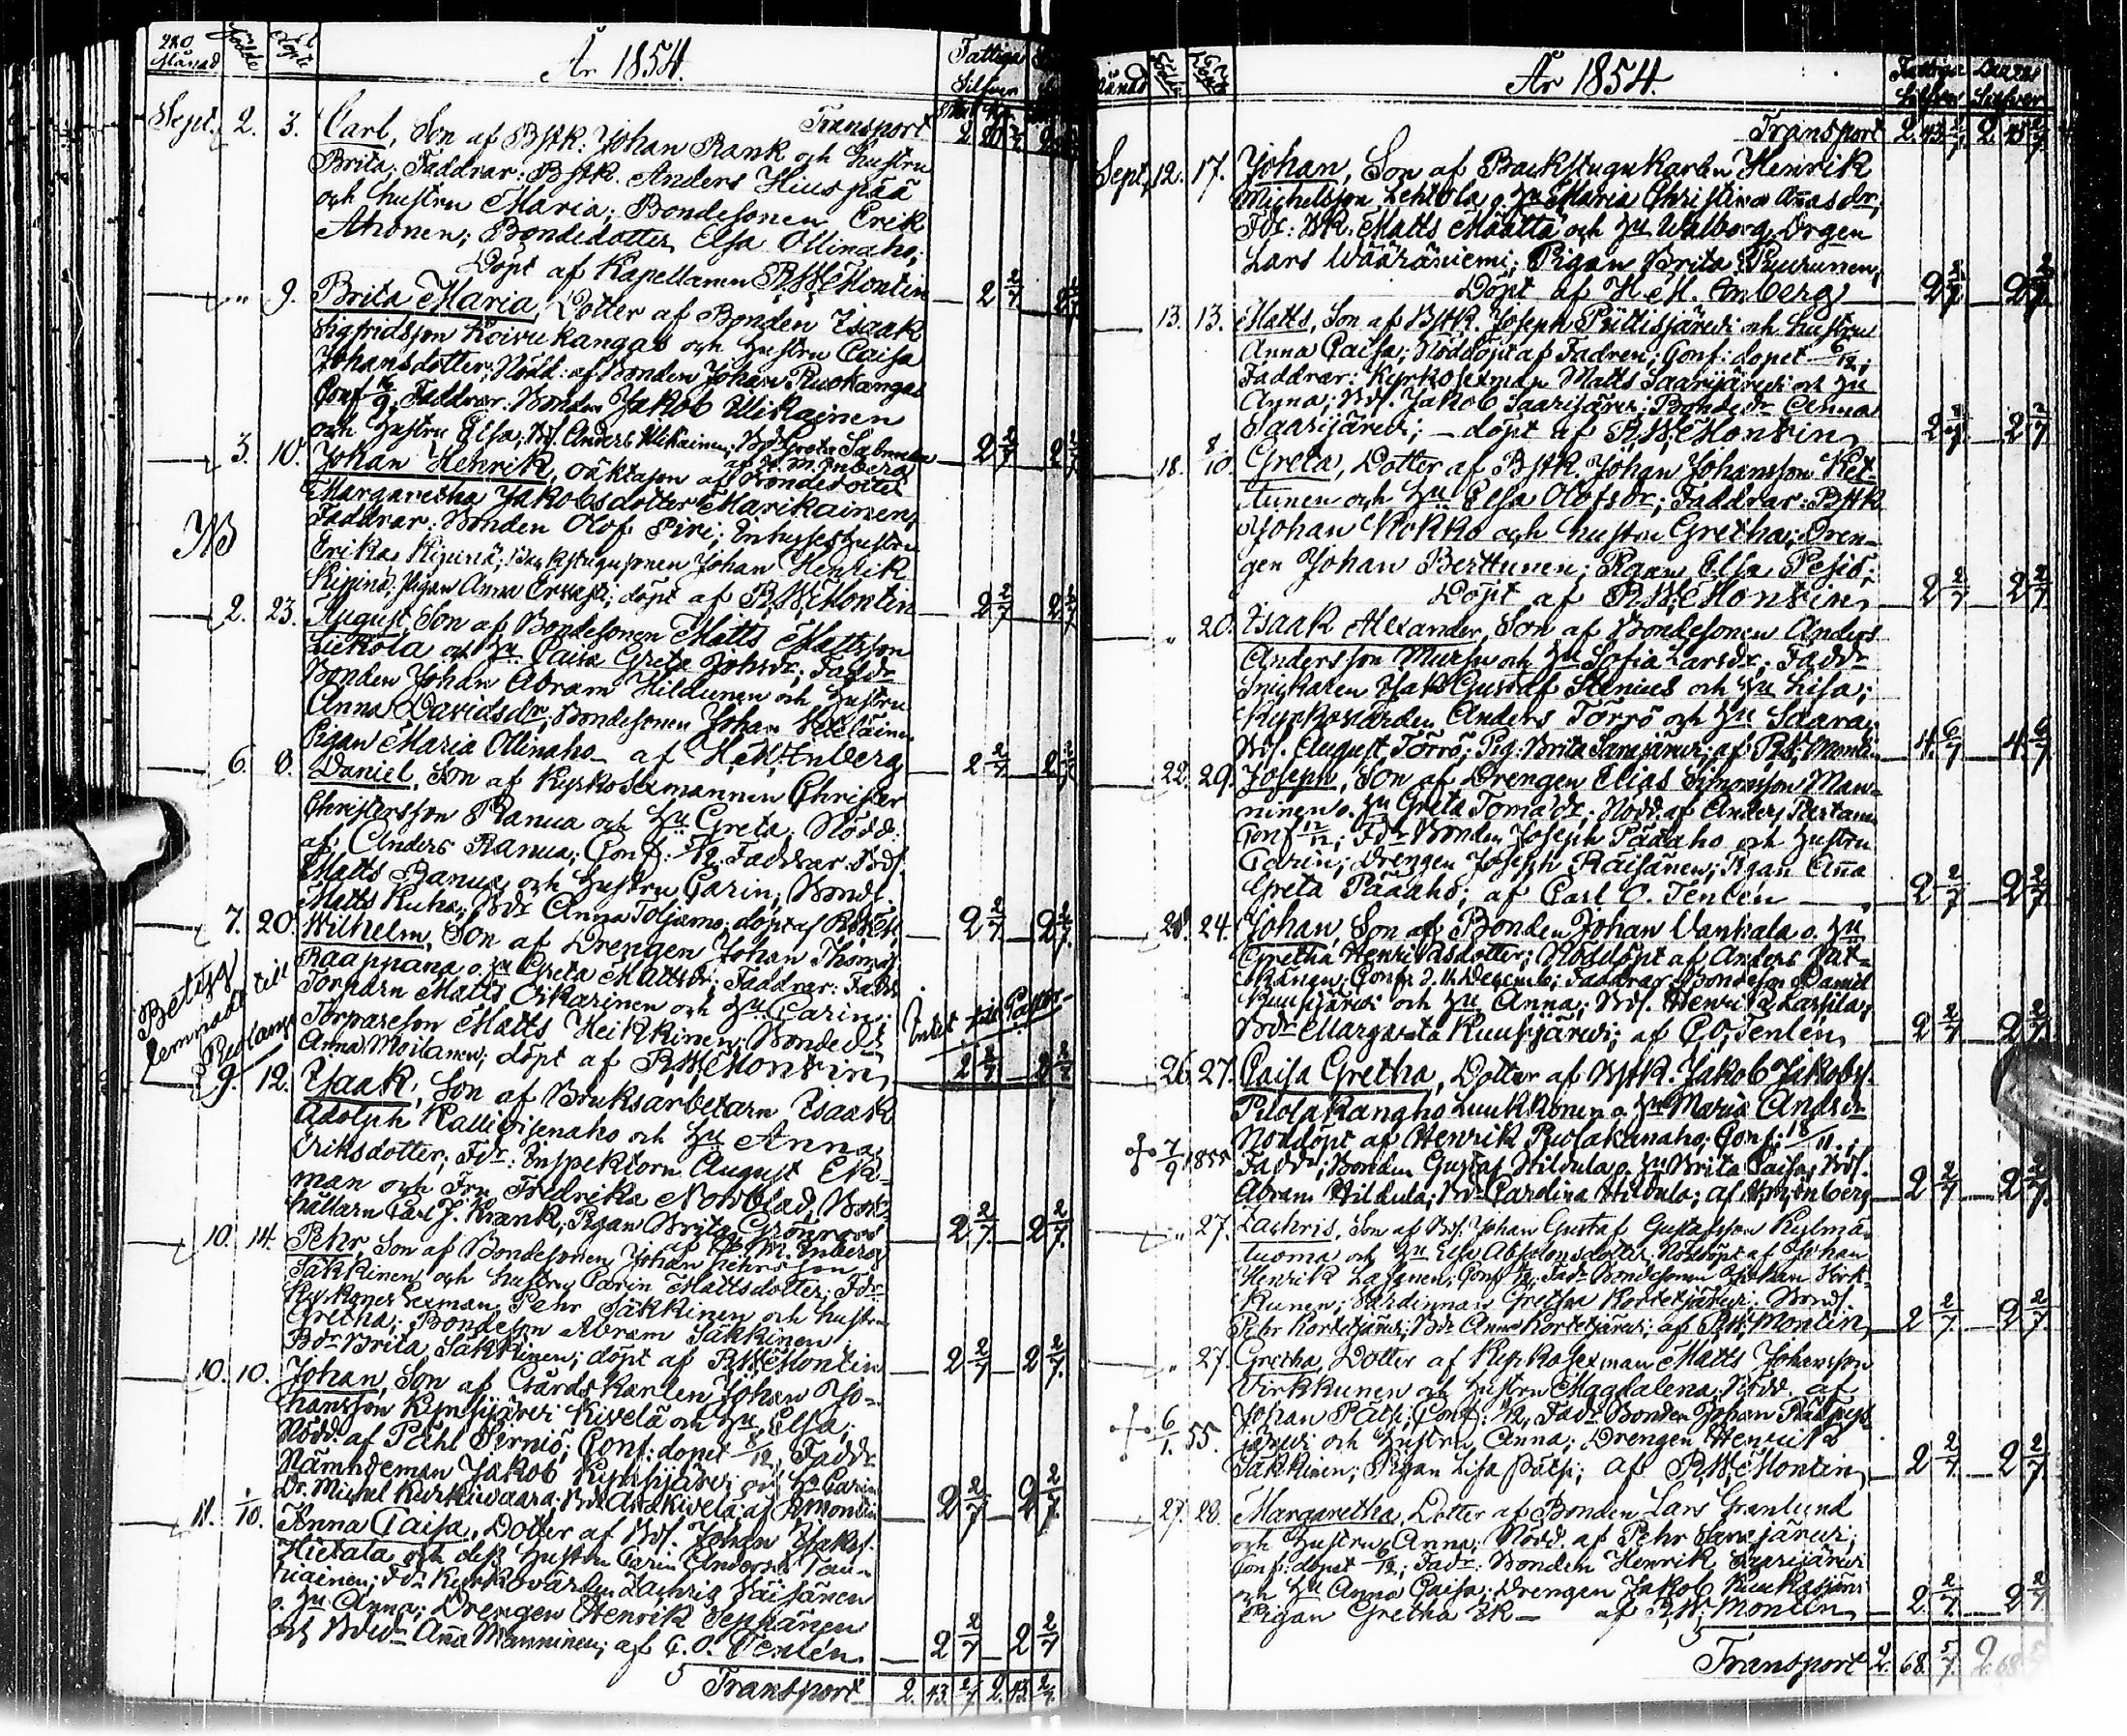 280
Månad Födde Döpte År 1854. Fattiga
Silfver
Transport
Sept. 2. 3. Carl, Son af Bstk: Johan Rank och hustru 2 20
Brita; Faddrar: Bstk. Anders Hiuspää
och hustru Maria; Bondesonen Erik
Ahonen; Bondedotter Elsa Ollinaho;
Döpt af Kapellanen R.W. Montin 2 2/7 2 2/7
" 9. Brita Maria, Dotter af Bonden Isaak
Sigfridsson Koivukangas och hustru Caisa
Johansdotter; Nödd: af Bonden Johan Ruokangas
Conf Faddrar: Bonden Jakob Mikainen
och hustru Elsa; Bds. Anders Mikainen; Greta
af H.M. Enberg 2 2/7 2 2/7
3. 10. Johan Henrik, oäkta son af Bondedotter
Margaretha Jakobsdotter Marikainen;
Faddrar: Bonden Olof Piri; Inhyseshustru
NB
Erika Kipinä; Backstugusonen Johan Henrik
Kipinä; Pigan Anna; döpt af R.W. Montin 2 2/7 2 2/7
2. 23. August, Son af Bondesonen Matts Mattsson
och Hu Caisa Greta Johsdr; Faddr
Bonden Johan Abram Hildunen och hustru
Anna Davidsdr; Bondesonen Johan
Pigan Maria Ollinaho af H.M. Enberg 2 2/7 2 2/7
6. 8. Daniel, Son af Kyrkosexmannen Christer
Christersson Ranua och Hu Greta; Nödd.
af Anders Ranua; Conf: Faddrar: Bds.
Matts Ranua och hustru Carin; Bonds.
Matts Kuha; Bdr Anna Toljamo; döpt af 2 2/7 2 2/7
7. 20. Wilhelm, Son af Drengen Johan Thomas
Raappana o. Hu Greta Mattsdr; Faddrar:
Betyg
lemnade till
Torparn Matts Oikarinen och Hu Carin;
Torpareson Matts Heikkinen; Bondedr
Anna Moilanen; döpt af R.W. Montin 2 2/7 2 2/7
9. 12. Isaak, Son af Bruksarbetarn Isaak
Adolph och Hu Anna
Eriksdotter; Fdr: Inspektorn August Ek-
man och Fru Fredrika Nordblad; Bok-
hållarn Carl J. Krank; Pigan Brita Grönroos
af H.M. Enberg 2 2/7 2 2/7
10. 14. Pehr, Son af Bondesonen Johan Pehrsson
Jäkkinen och hustru Carin Mattsdotter; Fdr
Kyrkones Sexman Pehr Jäkkinen och hustru
Gretha; Bondeson Abram Jäkkinen
Bdr Brita Jäkkinen; döpt af R.W. Montin 2 2/7 2 2/7
10. 10. Johan, Son af Gårdskarlen Johan Jo-
hansson Kynsijärvi Kivelä och Hu Elsa;
Nödd. af Påhl Sirniö; Conf: dopet 8/12; Faddr
Nämndeman Jakob Kynsijärvi och Hu Carin
Dr. Michel Kurkivaara; Bdr Anna Kivelä; af R. Montin 2 2/7 2 2/7
11. 1/10. Anna Caisa, Dotter af Bds. Johan Isaks.
Hietala och dess hustru Carin Andersdr
Fdr: Kyrkovärden Zachris Väisänen
o. Hu Anna; Drengen Henrik Seppänen
och Bdr Anna Manninen; af C.O. Tenlén. 2 2/7 2 2/7
Transport 2. 43. 2/7 2. 43. 2/7
Månad Födde Döpte År 1854. Fattiga
Silfver Silfver
Transport 2. 43 2/7 2. 45 2/7
Sept. 12. 17. Johan, Son af Backstugukarlen Henrik
Michelsson Lehtola o. Hu Maria Christina Anasdr;
Fdr: Bk. Matts Määttä och Hu Walborg, Drgen
Lars Wääräniemi; Pigan Brita Puurunen;
Döpt af H.M. Enberg 2 2/7 2 2/7
13. 13. Matts, Son af Bstk. Joseph Püttisjärvi och hustru
Anna Caisa; Nöddöpt af Fadren; Conf: dopet 6/12;
Faddrar: Kyrkosexman Matts Saarijärvi och Hu
Anna; Bds. Jakob Saarijärvi; Bondedr Anna
Saarijärvi; döpt af R.W. Montin 2 2/7 2 2/7
18. 8/10. Greta, Dotter af Bstk. Johan Johansson Ket-
tunen och Hu Elsa Olofsdr; Faddrar: Bstk
Johan Kokko och hustru Gretha; Dren-
gen Johan Berttunen; Pigan Elsa Pesiö;
Döpt af R.W. Montin 2 2/7 2 2/7
" 20. Isaak Alexander, Son af Bondesonen Anders
Andersson Mursu och Hu Sofia Larsdr; Faddr
Snickaren Isak Gustaf Stenius och Hu Lisa;
Kyrkovärden Anders Törrö och Hu Saara;
Bds. August Törrö; Pig. Brita Sarajärvi; af R.W. Montin 4 6/7 4. 6/7
22. 29. Joseph, Son af Drengen Elias Simonsson Man-
ninen o. Hu Greta Tomasdr. Nödd. af Anders
Conf 12/12; Fdr Bonden Joseph Pääaho och hustru
Carin; Drengen Joseph Räisänen; Pigan Anna
Greta Pääaho; af Carl O. Tenlén 2 2/7 2 2/7
23. 24. Johan, Son af Bonden Johan Vanhala o. Hu
Gretha Henriksdotter; Nöddöpt af Anders
Conf: d. 11 Decemb; Faddrar Bondeson Daniel
Kuusijärvi och Hu Anna; Bds. Henrik Lassila;
Bdr Margareta Kuusijärvi; af C.O. Tenlén 2 2/7 2 2/7
26. 27. Caisa Gretha, Dotter af Bstk. Jakob Jakobs.
Puolakangho Luukkonen o. Hu Maria Andersdr
Nöddöpt af Henrik Puolakanaho; Conf: 18/11.
7/9 1855
Faddr; Bonden Gustaf Hildula o. Hu Brita Caisa; Bds.
Abram Hildula; Bdr Carolina Hildula; af H.M. Enberg 2 2/7 2 2/7
" 27. Zachris, Son af Bds. Johan Gustaf Gustafsson Kylmä-
tuoma och Hu Elsa Absalonsdotter, Nöddöpt af Johan
Henrik; Conf; Fadr Bondesonen Johan Kirk-
kunen; Värdinnan Gretha Kortetjärvi; Bonds.
Pehr Kortetjärvi; Bdr Anna Kortetjärvi; af R.W. Montin 2 2/7 2 2/7
" 27. Gretha, Dotter af Kyrkosexman Matts Johansson
Virkkunen och hustru Magdalena; Nödd. af
6/1. 55.
Johan Pätsi; Conf: Fadr Bonden Johan
järvi och hustru Anna; Drengen Henrik
Jäkkinen; Pigan Lisa Pätsi; af R.W. Montin 2 2/7 2 2/7
27. 28. Margaretha, Dotter af Bonden Lars Granlund
och hustru Anna; Nödd. af Pehr Sarajärvi;
Conf: dopet 6/12; Fadr: Bonden Henrik Sarajärvi
och Hu Anna Caisa; Drengen Jakob
Pigan Gretha Ek af R.W. Montin 2 2/7 2 2/7
Transport 2. 68. 5/7. 2. 68 5/7